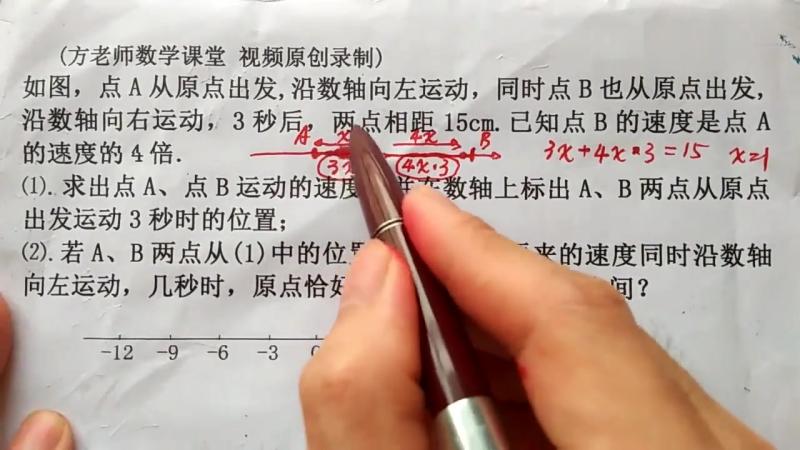 (方老师数学课堂 视频原创录制)
如图，点 A 从原点出发,沿数轴向左运动，同时点 B 也从原点出发,
沿数轴向右运动，3 秒后，两点相距 15cm.已知点 B 的速度是点 A
A x 4x B
的速度的 4 倍.
3x 4x·3
3x+4x·3=15 x=1
⑴. 求出点 A、点 B 运动的速度 在数轴上标出 A、B 两点从原点
出发运动 3 秒时的位置；
⑵. 若 A、B 两点从(1)中的位 来的速度同时沿数轴
向左运动，几秒时，原点恰 间？
-12 -9 -6 -3